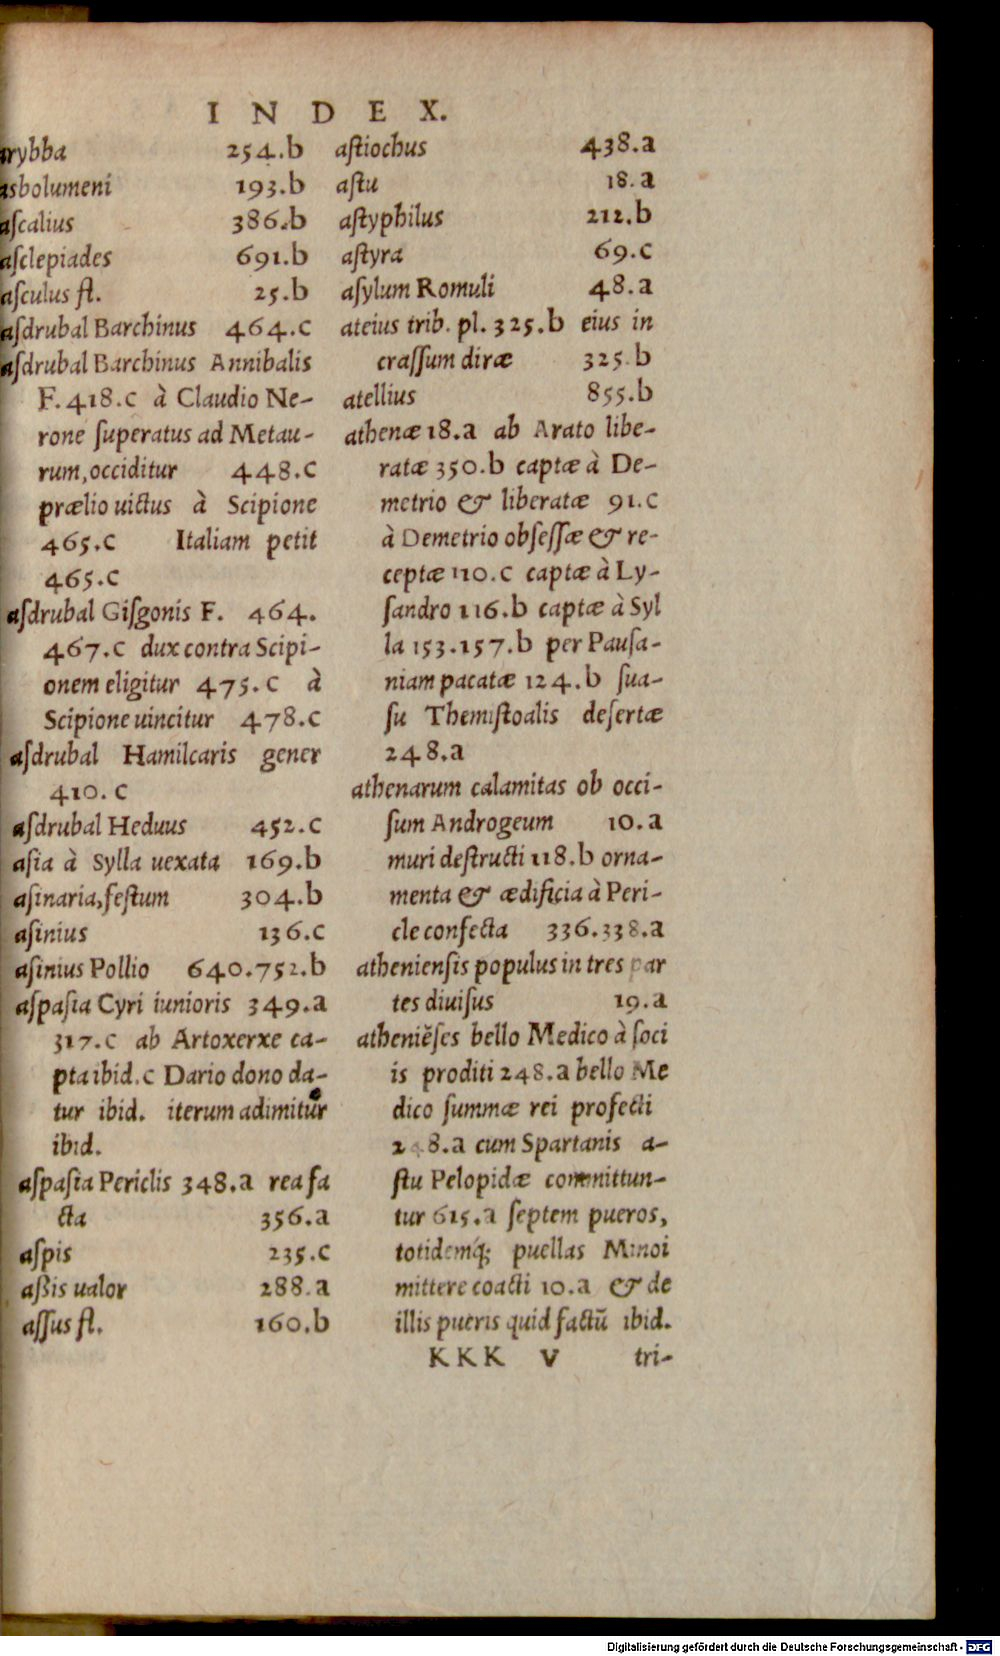 INDEX.
arybba 254.b
asbolumeni 193.b
aſcalius 386.b
aſclepiades 691.b
aſculus fl. 25.b
aſdrubal Barchinus 464.c
aſdrubal Barchinus Annibalis
F. 418.c à Claudio Ne-
rone ſuperatus ad Metau-
rum, occiditur 448.c
prælio uictus à Scipione
465.c Italiam petit
465.c
aſdrubal Giſgonis F. 464.
467.c dux contra Scipi-
onem eligitur 475.c à
Scipione uincitur 478.c
aſdrubal Hamilcaris gener
410.c
aſdrubal Heduus 452.c
aſia à Sylla uexata 169.b
aſinaria, feſtum 304.b
aſinius 136.c
aſinius Pollio 640.752.b
aſpaſia Cyri iunioris 349.a
317.c ab Artoxerxe ca-
pta ibid.c Dario dono da-
tur ibid. iterum adimitur
ibid.
aſpaſia Periclis 348.a rea fa
cta 356.a
aſpis 235.c
aßis ualor 288.a
aſſus fl. 160.b
aſtiochus 438.a
aſtu 18.a
aſtyphilus 212.b
aſtyra 69.c
aſylum Romuli 48.a
ateius trib. pl. 325.b eius in
craſſum diræ 325.b
atellius 855.b
athenæ 18.a ab Arato libe-
ratæ 350.b captæ à De-
metrio & liberatæ 91.c
à Demetrio obſeſſæ & re-
ceptæ 110.c captæ à Ly-
ſandro 116.b captæ à Syl
la 153.157.b per Pauſa-
niam pacatæ 124.b ſua-
ſu Themiſtoalis deſertæ
248.a
athenarum calamitas ob occi-
ſum Androgeum 10.a
muri deſtructi 118.b orna-
menta & ædificia à Peri-
cle confecta 336.338.a
athenienſis populus in tres par
tes diuiſus 19.a
atheniēſes bello Medico à ſoci
is proditi 248.a bello Me
dico ſummæ rei profecti
248.a cum Spartanis a-
ſtu Pelopidæ committun-
tur 615.a ſeptem pueros,
totidemq́; puellas Minoi
mittere coacti 10.a & de
illis pueris quid factū ibid.
KKK v tri-
Digitalisierung gefördert durch die Deutsche Forschungsgemeinschaft - DFG